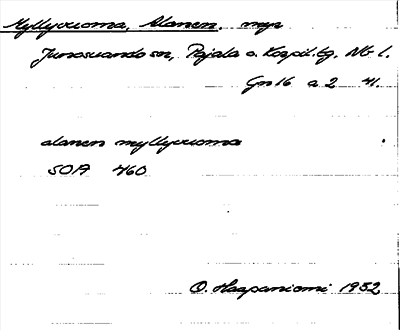 Myllyvuoma, Alanen. myr
Junosuando sn, Pajala o. Korpil. tg. Nb l.
Gn 16 a 2 41.
alanen myllyvuoma
SOA 460
O. Haapaniemi 1952